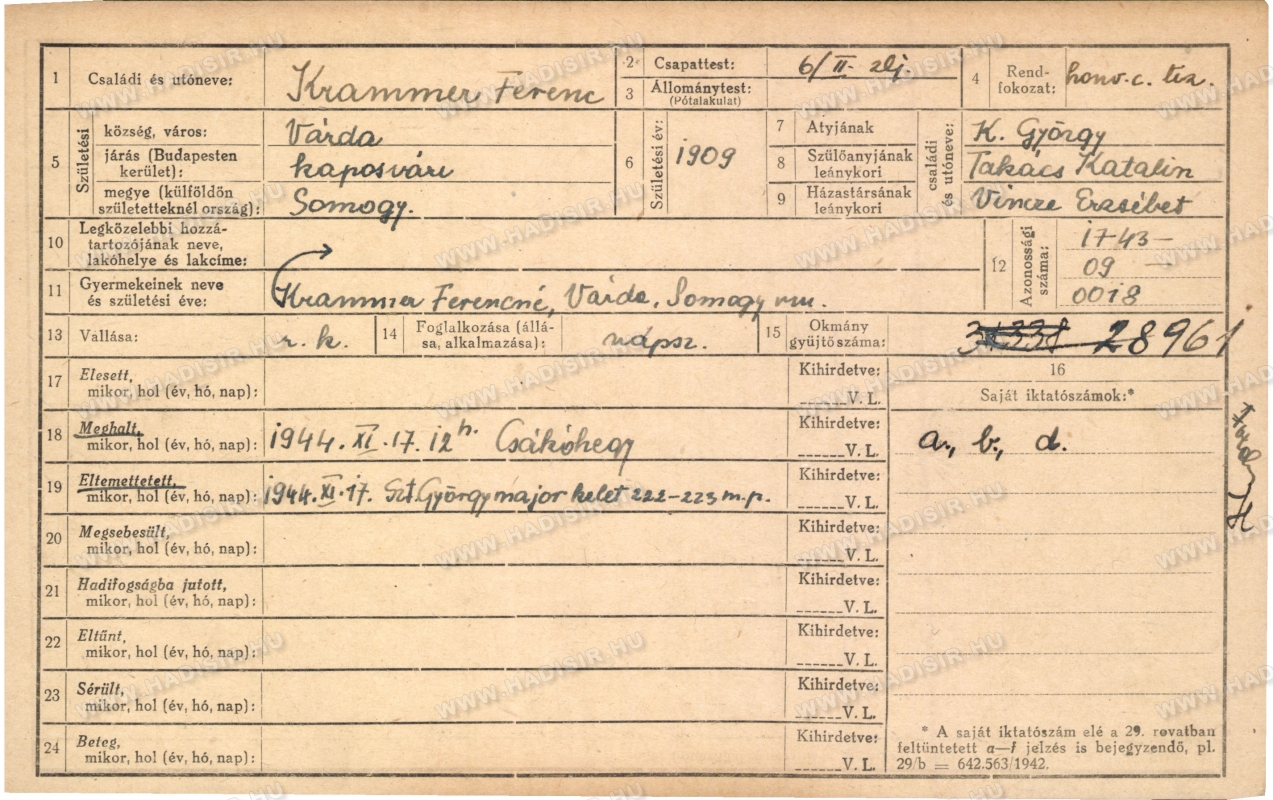 1 Családi és utóneve: Krammer Ferenc
2 Csapattest: 6/II. zlj
3 Állománytest: (Pótalakulat)
4 Rendfokozat: honv. c. tiz.
5 Születési
község, város: Várda
járás (Budapesten kerület): kaposvári
megye (külföldön születetteknél ország): Somogy.
6 Születési év: 1909
7 Atyjának K. György
8 Szülőanyjának leánykori Takács Katalin
9 Házastársának leánykori Vincze Erzsébet
családi és utóneve:
10 Legközelebbi hozzátartozójának neve, lakóhelye és lakcíme:
11 Gyermekeinek neve és születési éve: Krammer Ferencné, Várda, Somogy vm.
12 Azonossági száma: 1743-
09 —
0018
13 Vallása: r. k.
14 Foglalkozása (állása, alkalmazása): napsz.
15 Okmány gyüjtőszáma: 28961
16
Saját iktatószámok:*
a., b., d.
17 Elesett, mikor, hol (év, hó, nap): Kihirdetve: ______V. L.
18 Meghalt, mikor, hol (év, hó, nap): 1944. XI. 17. 12h. Csákóhegy Kihirdetve: ______V. L.
19 Eltemettetett, mikor, hol (év, hó, nap): 1944. XI. 17. Szt. György major kelet 222–223 m.p. Kihirdetve: ______V. L.
20 Megsebesült, mikor, hol (év, hó, nap): Kihirdetve: ______V. L.
21 Hadifogságba jutott, mikor, hol (év, hó, nap): Kihirdetve: ______V. L.
22 Eltűnt, mikor, hol (év, hó, nap): Kihirdetve: ______V. L.
23 Sérült, mikor, hol (év, hó, nap): Kihirdetve: ______V. L.
24 Beteg, mikor, hol (év, hó, nap): Kihirdetve: ______V. L.
* A saját iktatószám elé a 29. rovatban
feltüntetett a—f jelzés is bejegyzendő, pl.
29/b = 642.563/1942.
WWW.HADISIR.HU